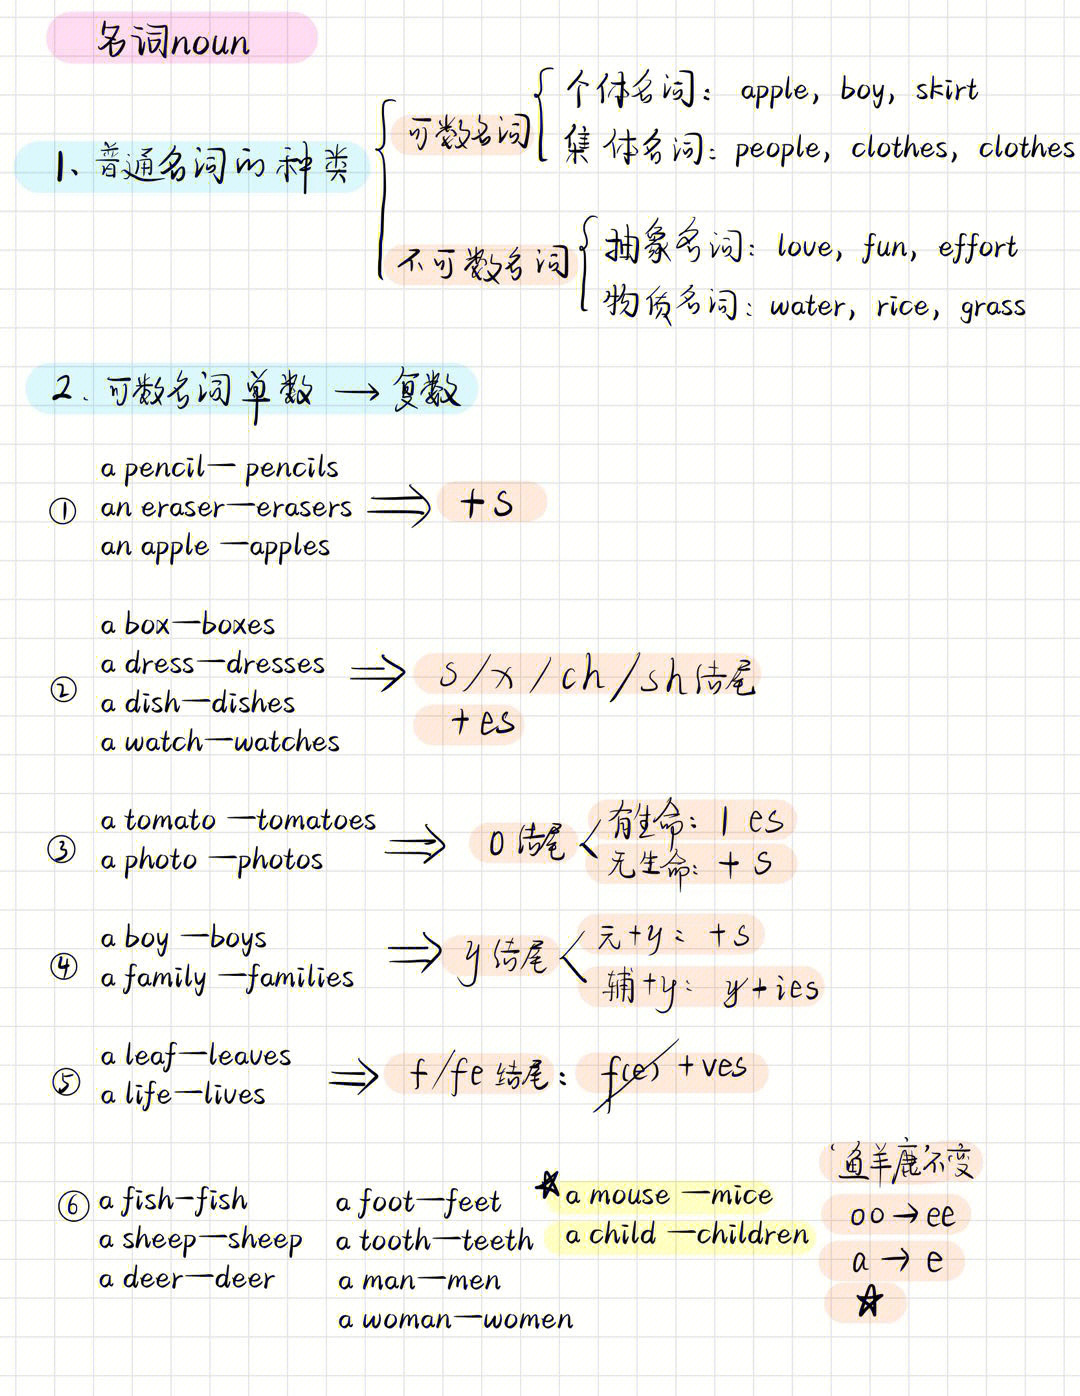 名词noun
1、普通名词的种类
可数名词
个体名词: apple, boy, skirt
集体名词: people, clothes, clothes
不可数名词
抽象名词: love, fun, effort
物质名词: water, rice, grass
2. 可数名词单数 → 复数
①
a pencil—pencils
an eraser—erasers
an apple—apples
⇒ +s
②
a box—boxes
a dress—dresses
a dish—dishes
a watch—watches
⇒ s/x/ch/sh结尾
+es
③
a tomato—tomatoes
a photo—photos
⇒ o结尾
有生命: | es
无生命: +s
④
a boy—boys
a family—families
⇒ y结尾
元+y: +s
辅+y: y+ies
⑤
a leaf—leaves
a life—lives
⇒ f/fe结尾: f(e) +ves
⑥
a fish—fish
a sheep—sheep
a deer—deer
a foot—feet
a tooth—teeth
a man—men
a woman—women
☆ a mouse—mice
a child—children
“鱼羊鹿”不变
oo→ee
a→e
☆